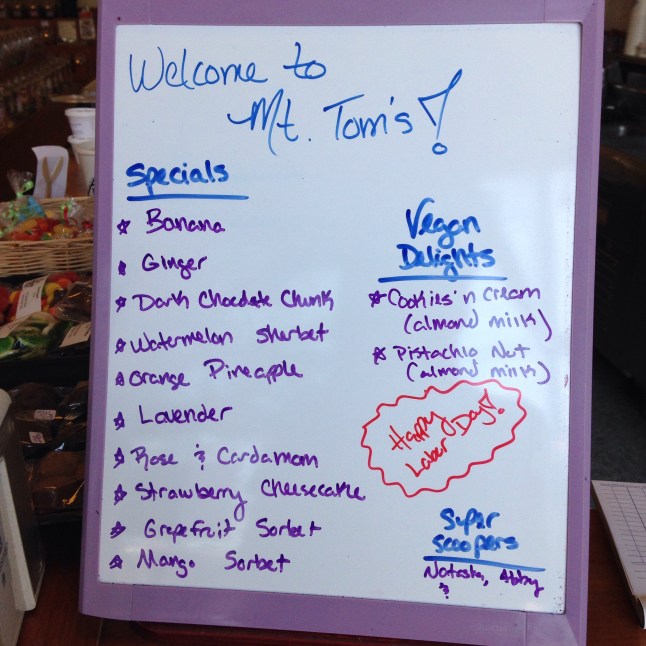 Welcome to
Mt. Tom's!
Specials
☆ Banana
☆ Ginger
☆ Dark Chocolate Chunk
☆ Watermelon Sherbet
☆ Orange Pineapple
☆ Lavender
☆ Rose & Cardamom
☆ Strawberry Cheesecake
☆ Grapefruit Sorbet
☆ Mango Sorbet
Vegan
Delights
☆ Cookies 'n Cream
(almond milk)
☆ Pistachio Nut
(almond milk)
Happy
Labor Day!
Super
Scoopers
Natasha, Abby
&